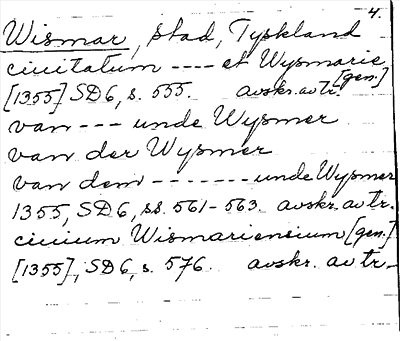 4.
Wismar, stad, Tyskland
ciuitatum ---- et Wysmarie
[gen.]
[1355] SD6, s. 555. avskr. av tr.
van --- unde Wysmer
van der Wysmer
van dem ------- unde Wysmer
1355, SD6, ss. 561-563. avskr. av tr.
ciuium Wismariensium [gen.]
[1355], SD6, s. 576. avskr. av tr.